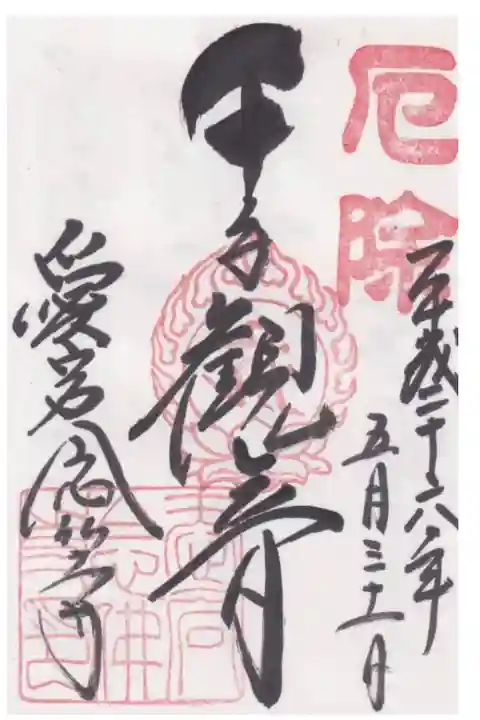 厄除
平成二十六年
五月三十一日
千手観音
愛宕念仏寺